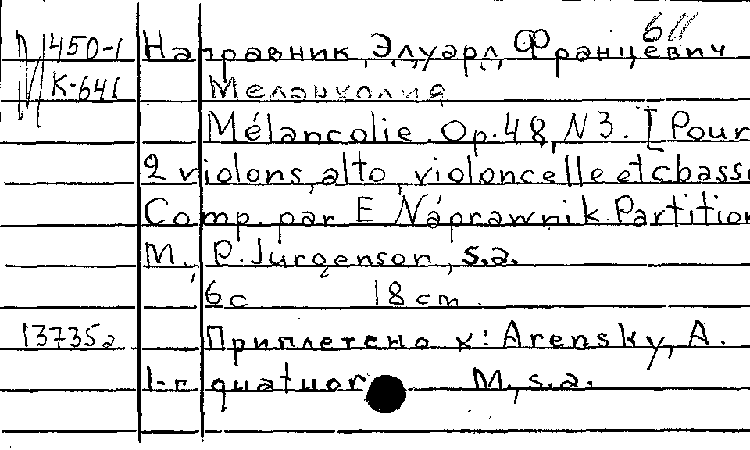 611
450-1 Направник, Эдуард Францевич
К-641 Меланхолия
Mélancolie. Op. 48, N 3. [Pour
2 violons, alto, violoncelle et cbasse
Comp. par E Náprawnik. Partition
M., P. Jurgenson, s.a.
6 с 18 cm.
137352 Приплетено к: Arensky, A.
1-r quatuor M., s.a.